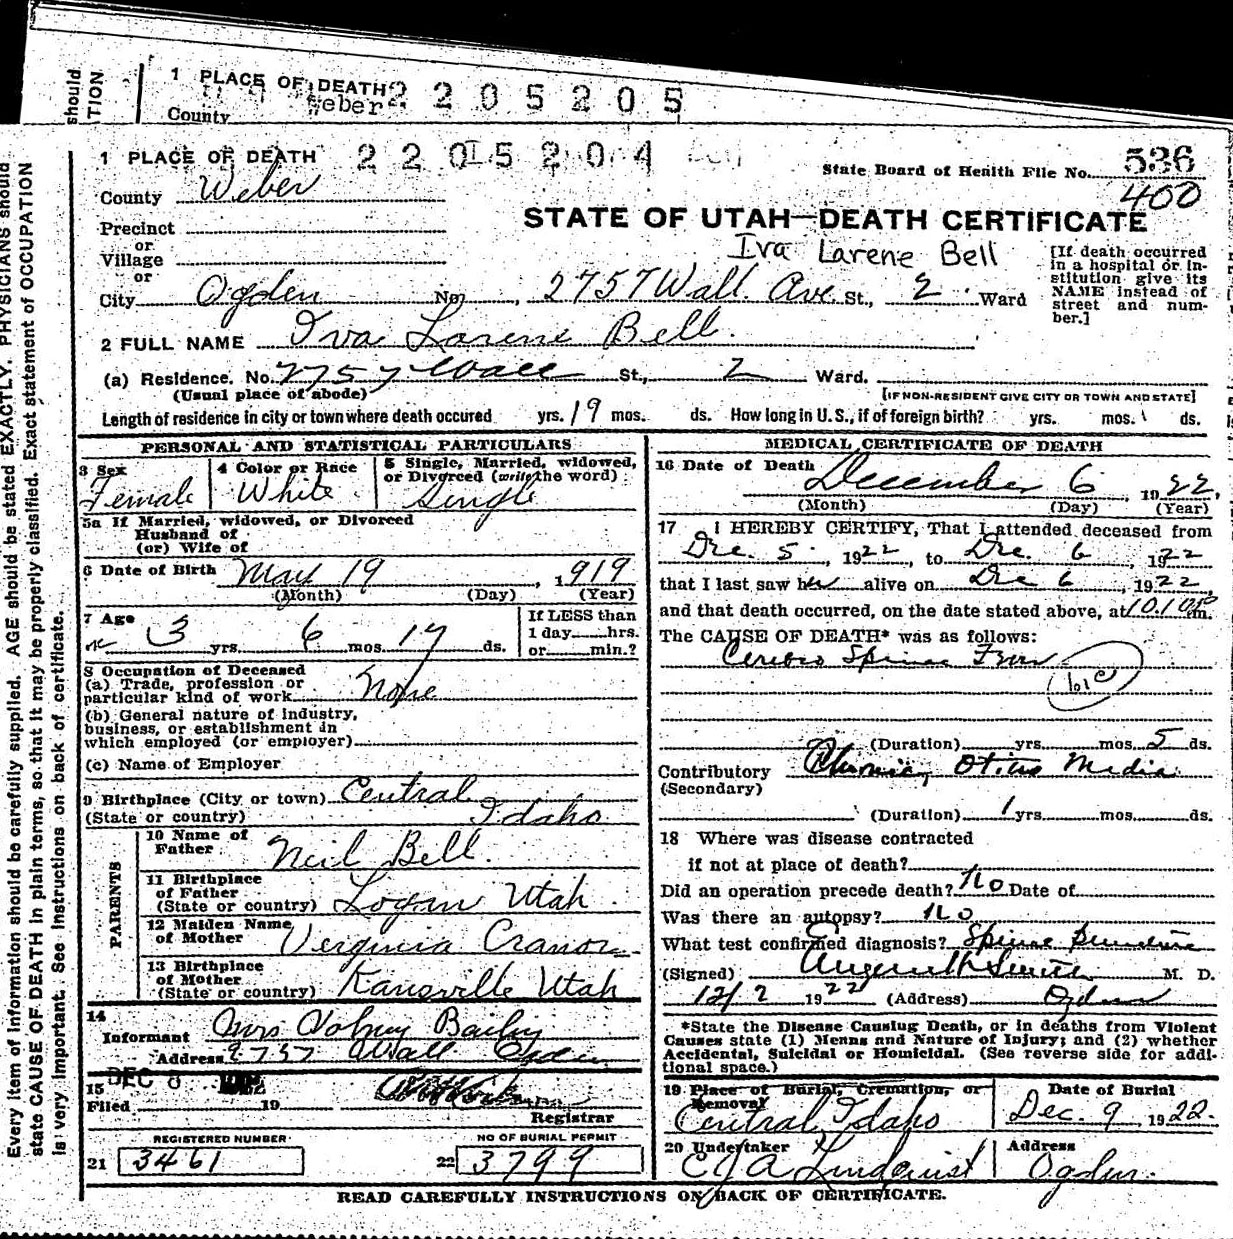 should
TION
1 PLACE OF DEATH 2205205
Weber
County
Every item of Information should be carefully supplied. AGE should be stated EXACTLY. PHYSICIANS should
state CAUSE OF DEATH in plain terms, so that it may be properly classified. Exact statement of OCCUPATION
is very important. See Instructions on back of certificate.
1 PLACE OF DEATH 2205204
State Board of Health File No. 536
400
County Weber
STATE OF UTAH—DEATH CERTIFICATE
Precinct
or
Village
or
Iva Larene Bell
[If death occurred
in a hospital or in-
stitution give its
NAME instead of
street and num-
ber.]
City Ogden No. , 2757 Wall Ave St., 2 Ward
2 FULL NAME Iva Larene Bell
(a) Residence. No. 2757 Wall St., 2 Ward.
(Usual place of abode) [IF NON-RESIDENT GIVE CITY OR TOWN AND STATE]
Length of residence in city or town where death occured yrs. 19 mos. ds. How long in U. S., if of foreign birth? yrs. mos. ds.
PERSONAL AND STATISTICAL PARTICULARS
3 Sex
Female
4 Color or Race
White
5 Single, Married, widowed,
or Divorced (write the word)
Single
5a If Married, widowed, or Divorced
Husband of
(or) Wife of
6 Date of Birth May 19, 1919
(Month) (Day) (Year)
7 Age
3 yrs. 6 mos. 17 ds.
If LESS than
1 day hrs.
or min.?
8 Occupation of Deceased
(a) Trade, profession or
particular kind of work None
(b) General nature of industry,
business, or establishment in
which employed (or employer)
(c) Name of Employer
9 Birthplace (City or town) Central
(State or country) Idaho
PARENTS
10 Name of
Father Neil Bell
11 Birthplace
of Father
(State or country) Logan Utah
12 Maiden Name
of Mother Verginia Cranor
13 Birthplace
of Mother
(State or country) Kanesville Utah
14
Informant Mrs Volney Bailey
Address 2757 Wall Ogden
15 DEC 8
Filed 19
Registrar
REGISTERED NUMBER
21 3461
NO OF BURIAL PERMIT
22 3799
MEDICAL CERTIFICATE OF DEATH
16 Date of Death December 6, 1922.
(Month) (Day) (Year)
17 I HEREBY CERTIFY, That I attended deceased from
Dec. 5, 1922, to Dec. 6, 1922
that I last saw her alive on Dec 6, 1922,
and that death occurred, on the date stated above, at m.
The CAUSE OF DEATH* was as follows:
Cerebro Spinal Fever
(Duration) yrs. mos. 5 ds.
Contributory Chronic Otitis Media
(Secondary)
(Duration) 1 yrs. mos. ds.
18 Where was disease contracted
if not at place of death?
Did an operation precede death? No Date of
Was there an autopsy? No
What test confirmed diagnosis? Spinal Puncture
(Signed) M. D.
1922 (Address) Ogden
*State the Disease Causing Death, or in deaths from Violent
Causes state (1) Means and Nature of Injury; and (2) whether
Accidental, Suicidal or Homicidal. (See reverse side for addi-
tional space.)
19 Place of Burial, Cremation, or
Removal
Central Idaho
Date of Burial
Dec. 9 1922.
20 Undertaker
C J A Lindquist
Address
Ogden.
READ CAREFULLY INSTRUCTIONS ON BACK OF CERTIFICATE.